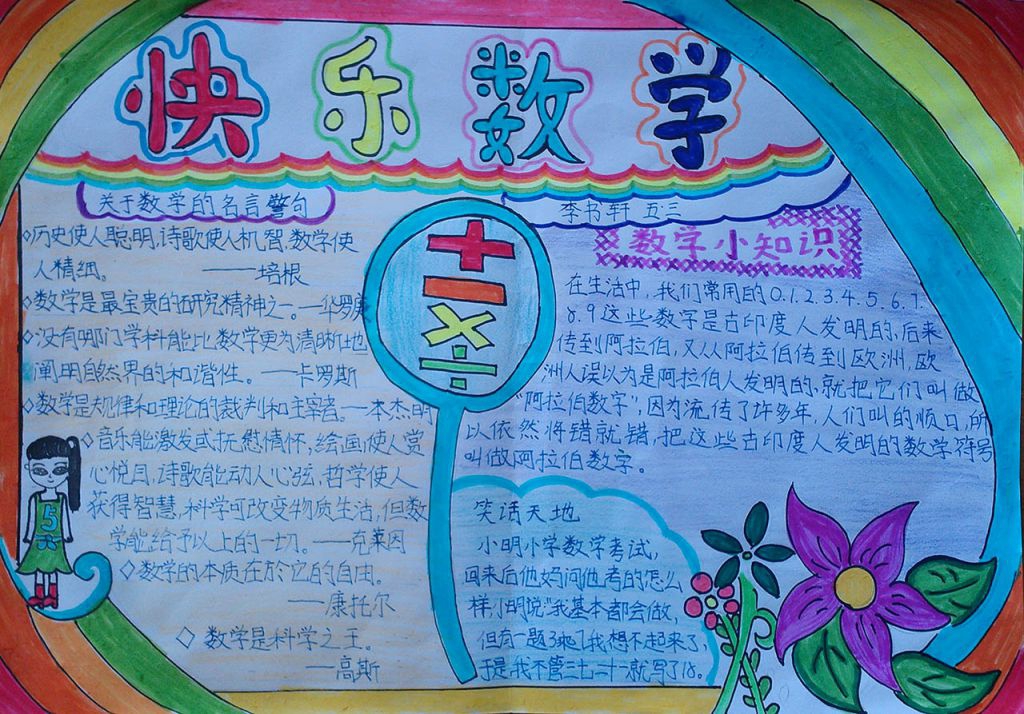 快乐数学
关于数学的名言警句
◇历史使人聪明,诗歌使人机智,数学使
人精细。 ——培根
◇数学是最宝贵的研究精神之一。—华罗庚
◇没有哪门学科能比数学更为清晰地
阐明自然界的和谐性。—卡罗斯
◇数学是规律和理论的裁判和主宰者。—本杰明
◇音乐能激发或抚慰情怀,绘画使人赏
心悦目,诗歌能动人心弦,哲学使人
获得智慧,科学可改变物质生活,但数
学能给予以上的一切。—克莱因
◇数学的本质在於它的自由。
——康托尔
◇ 数学是科学之王。
—高斯
5
+
−
×
÷
李书轩 五.三
数学小知识
在生活中,我们常用的0.1.2.3.4.5.6.7.
8.9这些数字是古印度人发明的,后来
传到阿拉伯,又从阿拉伯传到欧洲,欧
洲人误以为是阿拉伯人发明的,就把它们叫做
“阿拉伯数字”,因为流传了许多年,人们叫的顺口,所
以依然将错就错,把这些古印度人发明的数学符号
叫做阿拉伯数字。
笑话天地
小明小学数学考试,
回来后他妈问他考的怎么
样,小明说:“我基本都会做,
但有一题3乘7我想不起来了,
于是我不管三七二十一就写了18。